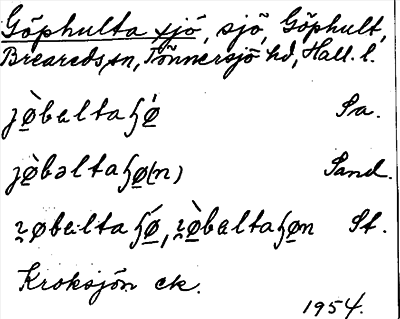 Göphulta sjö, sjö, Göphult,
Breareds sn, Tönnersjö hd, Hall. l.
jø̀bɐltaɧǿ Sa.
jø̀bəltaɧø(n) Sand.
ɀøbɐltaɧǿ, ɀø̀bɐltaɧøn St.
Kroksjön ek.
1954.